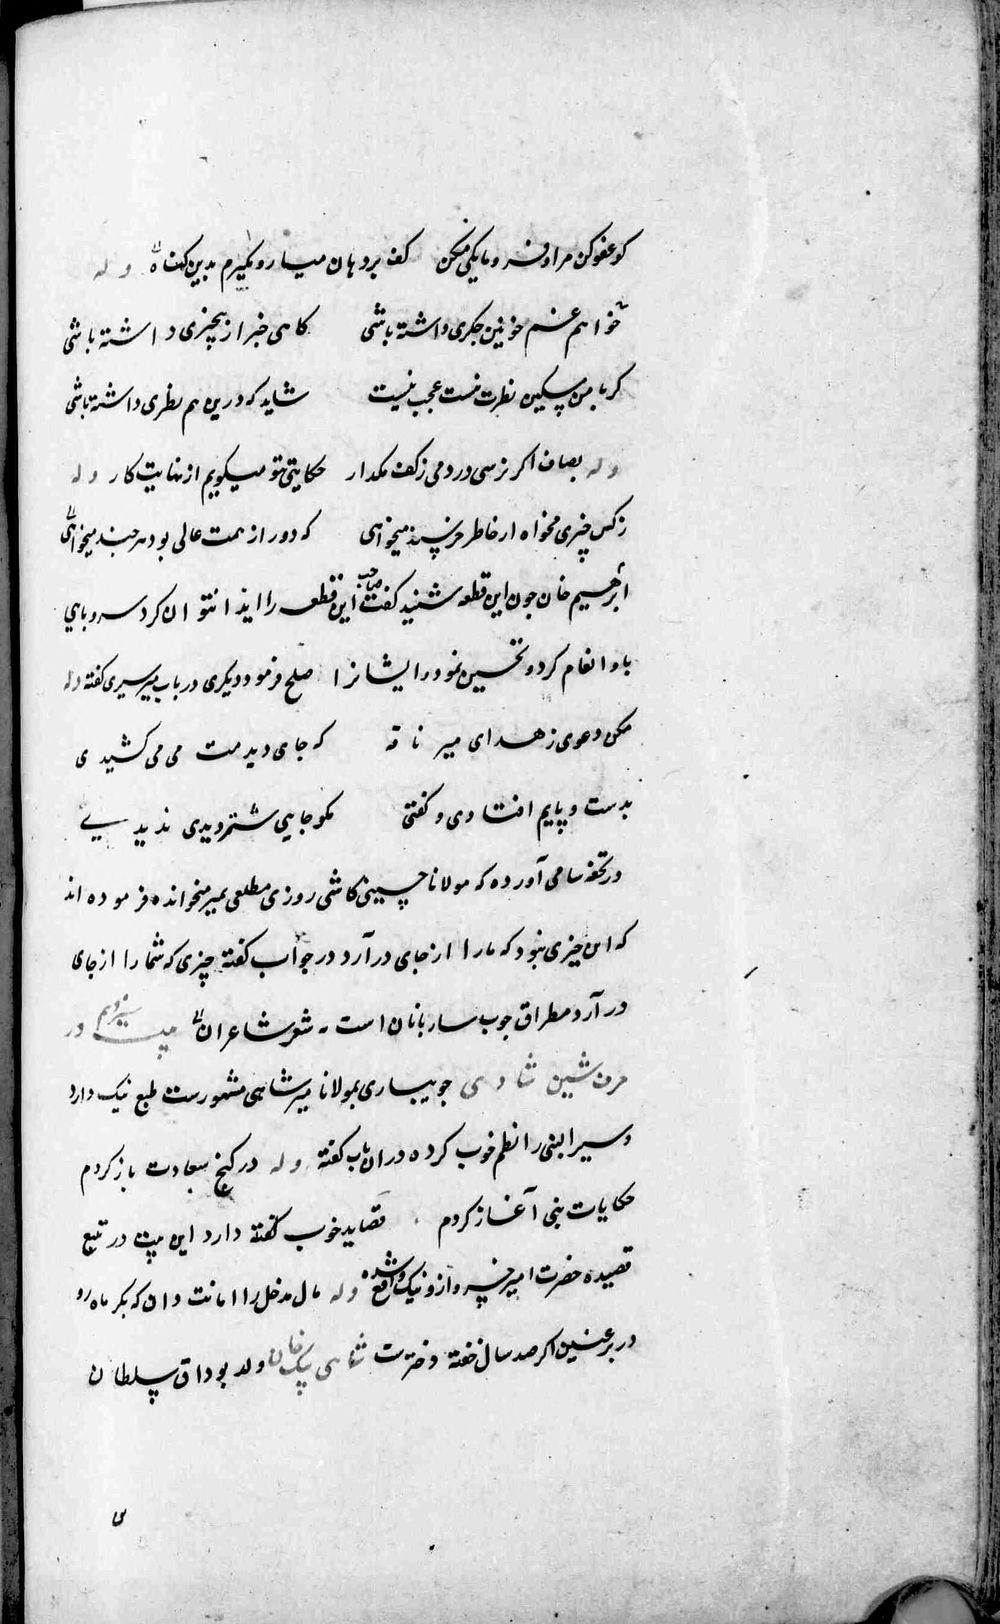 کو عفو کن مرا و فرومایکی مکن کف بر دهان میار و مکیرم بدین کناه وله
خواهم غم خونین جکری داشته باشی کاهی خبر از بیخبری داشته باشی
کر با من مسکین نظرت نیست عجب نیست شاید که درین هم نظری داشته باشی
وله بصاف اکر نرسی درد می ز کف مکذار حکایتی بتو میکویم از نهایت کار وله
ز کس چیزی مخواه ار خاطر خرسند میخواهی که دور از همت عالی بود هر چند میخواهی
ابرهیم خان چون این قطعه شنید کفت صاحب این قطعه را ایذا نتوان کرد سروپای
باو انعام کرد و تحسین نمود و ایشانرا صلح فرمود دیکری در باب میر سیری کفته وله
مکن دعوی زهد ای میر ناقه که جای دیدمت می می کشیدی
بدست و پایم افتادی و کفتی مکو جایی شتر دیدی ندیدی
در تحفه سامی آورده که مولانا حسینی کاشی روزی مطلعی بمیر میخوانده فرموده اند
که این چیزی نبود که مارا از جای در آرد در جواب کفته چیزی که شمارا از جای
در آرد مطراق چوب ساربانان است - شعر شاعران سیزدهم در
حرف شین شادی جویباری بمولانا میر شاهی مشهورست طبع نیک دارد
و سیر النبی را نظم خوب کرده در ان باب کفته وله در کنج سعادت باز کردم
حکایات نبی آغاز کردم قصاید خوب کفته دارد این بیت در تتبع
قصیده حضرت امیر خسرو ازو نیک واقع شده وله مال مدخل را امانت دان که بکر ماه رو
در بر عنین اکر صد سال خفته دخترست شاهی بیک خان ولد بوداق سلطان